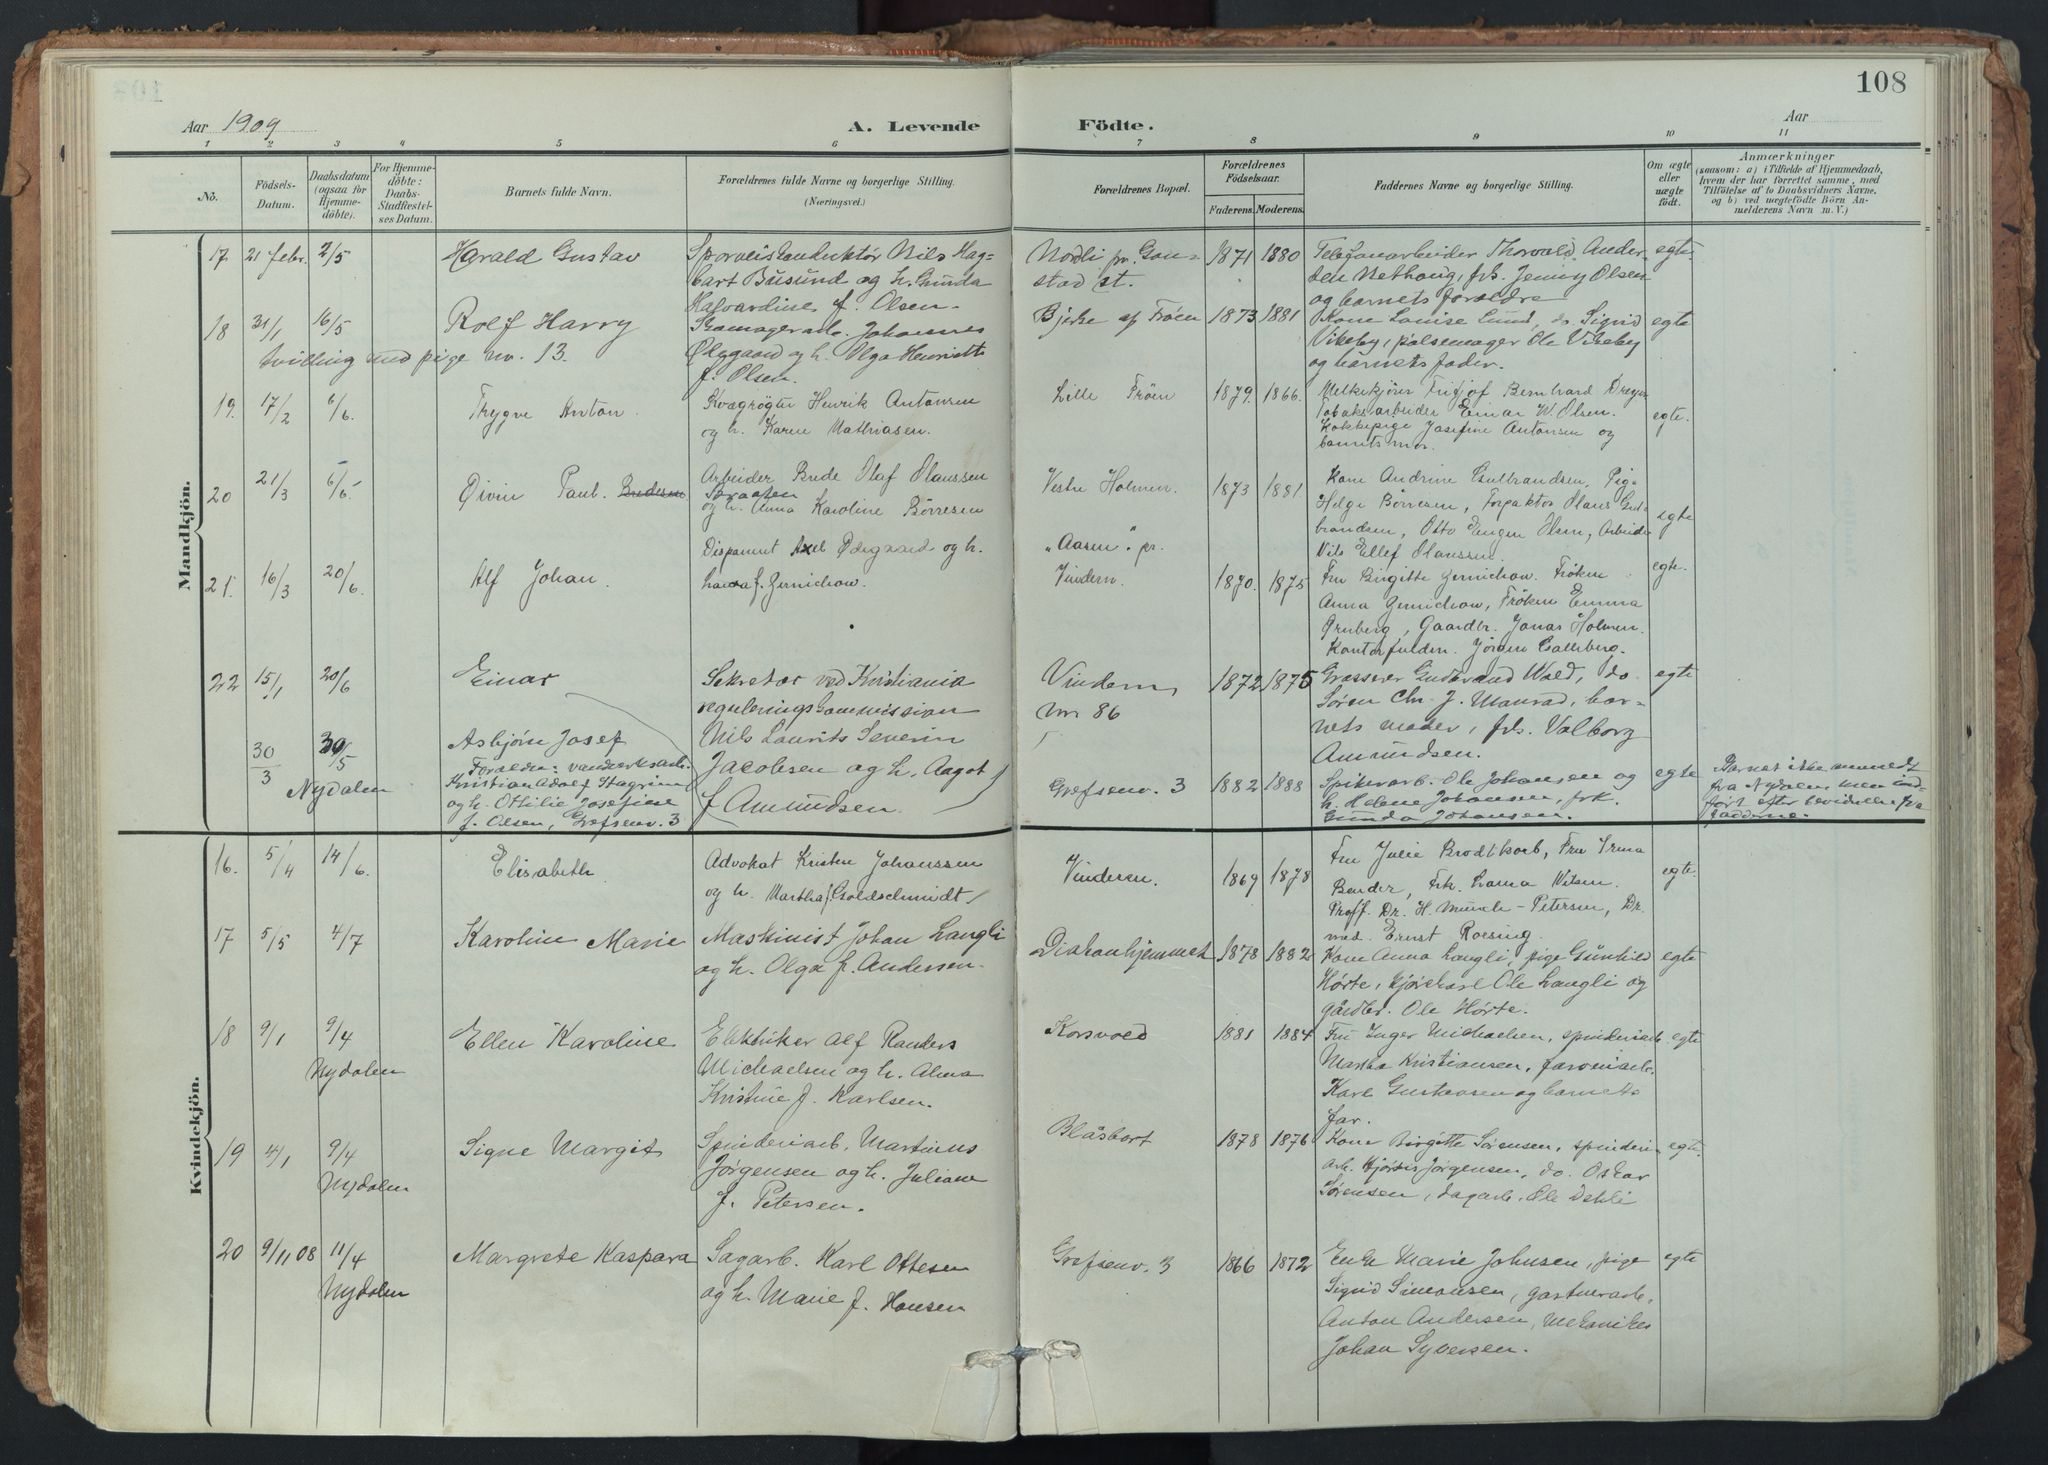 108
Aar 1909
A. Levende Födte.
Aar
1 2 3 4 5 6 7 8 9 10 11
No.
Födsels-Datum.
Daabsdatum (ogsaa for Hjemmedöbte).
For Hjemmedöbte: Daabs-Stadfæstelses Datum.
Barnets fulde Navn.
Forældrenes fulde Navne og borgerlige Stilling.
(Næringsvei.)
Forældrenes Bopæl.
Forældrenes Födselsaar.
Faderens. Moderens.
Faddernes Navne og borgerlige Stilling.
Om ægte eller uægte födt.
Anmærkninger
(saasom: a) i Tilfælde af Hjemmedaab, hvem der har forrettet samme, med Tilföielse af to Daabsvidners Navne, og b) ved uægtefödte Börn Anmelderens Navn m. V.)
Mandkjön.
17 21 febr. 2/5 Harald Gustav
Sporveiskonduktør Nils Hag-
bart Busund og h. Gunda
Halvardine f. Olsen
Nordli pr. Gau-
stad st.
1871 1880
Telefonarbeider Thorvald Ander-
sen Nethaug, frk. Jenny Olsen
og barnets forældre
egte
18 31/1 16/5 Rolf Harry
tvilling med pige nr. 13.
Skomagerarb. Johannes
og h. Olga Henriette
f. Olsen.
Bjerke af Frøen 1873 1881
Kone Louise Lund, do Sigrid
Vikeby, pølsemager Ole Vikeby
og barnets fader.
egte
19. 17/2 6/6. Trygve Anton.
Kvægrøgter Henrik Antonsen
og h. Karen Mathiasen.
Lille Frøen 1879. 1866.
Melkekjører Fridjof Bernhard Dreyer
Tobaksarbeider Einar W. Olsen.
Kokkepige Josefine Antonsen og
barnets mor.
egte.
20 21/3 6/6 Øivin Paul. Brudesen
Arbeider Brede Olaf Olaussen
og h. Anna Karoline Børresen
Vestre Holmen. 1873 1881.
Kone Andrine Gulbrandsen, Pige
Helga Børresen, Forpakter Olaus Gul-
brandsen, Otto Eugen Olsen, Arbeider
Nils Ellef Olaussen
egte
21. 16/3 20/6. Alf Johan.
Disponent Axel Ødegaard og h.
Laura f. Gernichow.
"Aasen" pr.
Vindern. 1870. 1875
Fru Birgitte Gernichow. Frøken
Anna Gernichow, Frøken Emma
Gruberg, Gaardbr. Jonas Holmen.
Jørgen Galleberg.
egte.
22 15/1 20/6 Einar
Sekretær ved Kristiania
reguleringskommission
Nils Laurits Severin
Jacobsen og h. Aagot
f. Amundsen.
Vindern
nr 86
1872 1875
Grosserer Gudbrand Wold, do
Søren Chr. J. Monrad, bar-
nets moder, frk. Valborg
Amundsen.
egte
30/3 30/5 Nydalen
Asbjørn Josef
Forældre: vandverksarb.
Kristian Adolf Stagrim
og h. Ottilie Josefine
f. Olsen, Grefsenv. 3
Grefsenv. 3 1882 1888
Spikerarb. Ole Johansen og
h. Helene Johansen, frk.
Gunda Johansen.
egte
Barnet ikke anmeldt
fra Nydalen men ind-
ført efter bevidnelse fra
fadderne.
Kvindekjön.
16. 5/4 14/6. Elisabeth
Advokat Kristen Johanssen
og h. Martha f. Goldschmidt
Vinderen. 1869 1878
Fru Julie Brodtkorb, Fru Irma
Bender, Frk. Lama Nilsen.
Proff. Dr. H. Munch-Petersen, Dr.
med. Ernst Roesing.
egte.
17 5/5 4/7 Karoline Marie
Maskinist Johan Langli
og h. Olga f. Andersen.
Diakonhjemmet 1878 1882
Kone Anna Langli, pige Gunhild
Hørte, kjørekarl Ole Langli og
gårdbr. Ole Hørte.
egte
18 9/1 9/4 Nydalen Ellen Karoline
Elektriker Alf Randers
Michaelsen og h. Alma
Kristine f. Karlsen.
Korsvold 1881 1884
Fru Inger Michaelsen, spinderiarb.
Martha Kristiansen, farveriarb.
Karl Gustavsen og barnets
far.
egte
19 4/1 9/4 Nydalen Signe Margit
Spinderiarb. Martinus
Jørgensen og h. Juliane
f. Petersen.
Blåsbort 1878 1876
Kone Birgitte Sørensen, spinderi-
arb. Hjørdis Jørgensen, do. Oskar
Sørensen, dagarb. Ole Dehli
egte.
20 9/11 08 11/4 Nydalen Margrete Kaspara
Sagarb. Karl Ottesen
og h. Marie f. Hansen
Grefsenv. 3 1866 1872
Enke Marie Johnsen, pige
Sigrid Simonsen, gartnerarb.
Anton Andersen, mekaniker
Johan Syversen.
egte